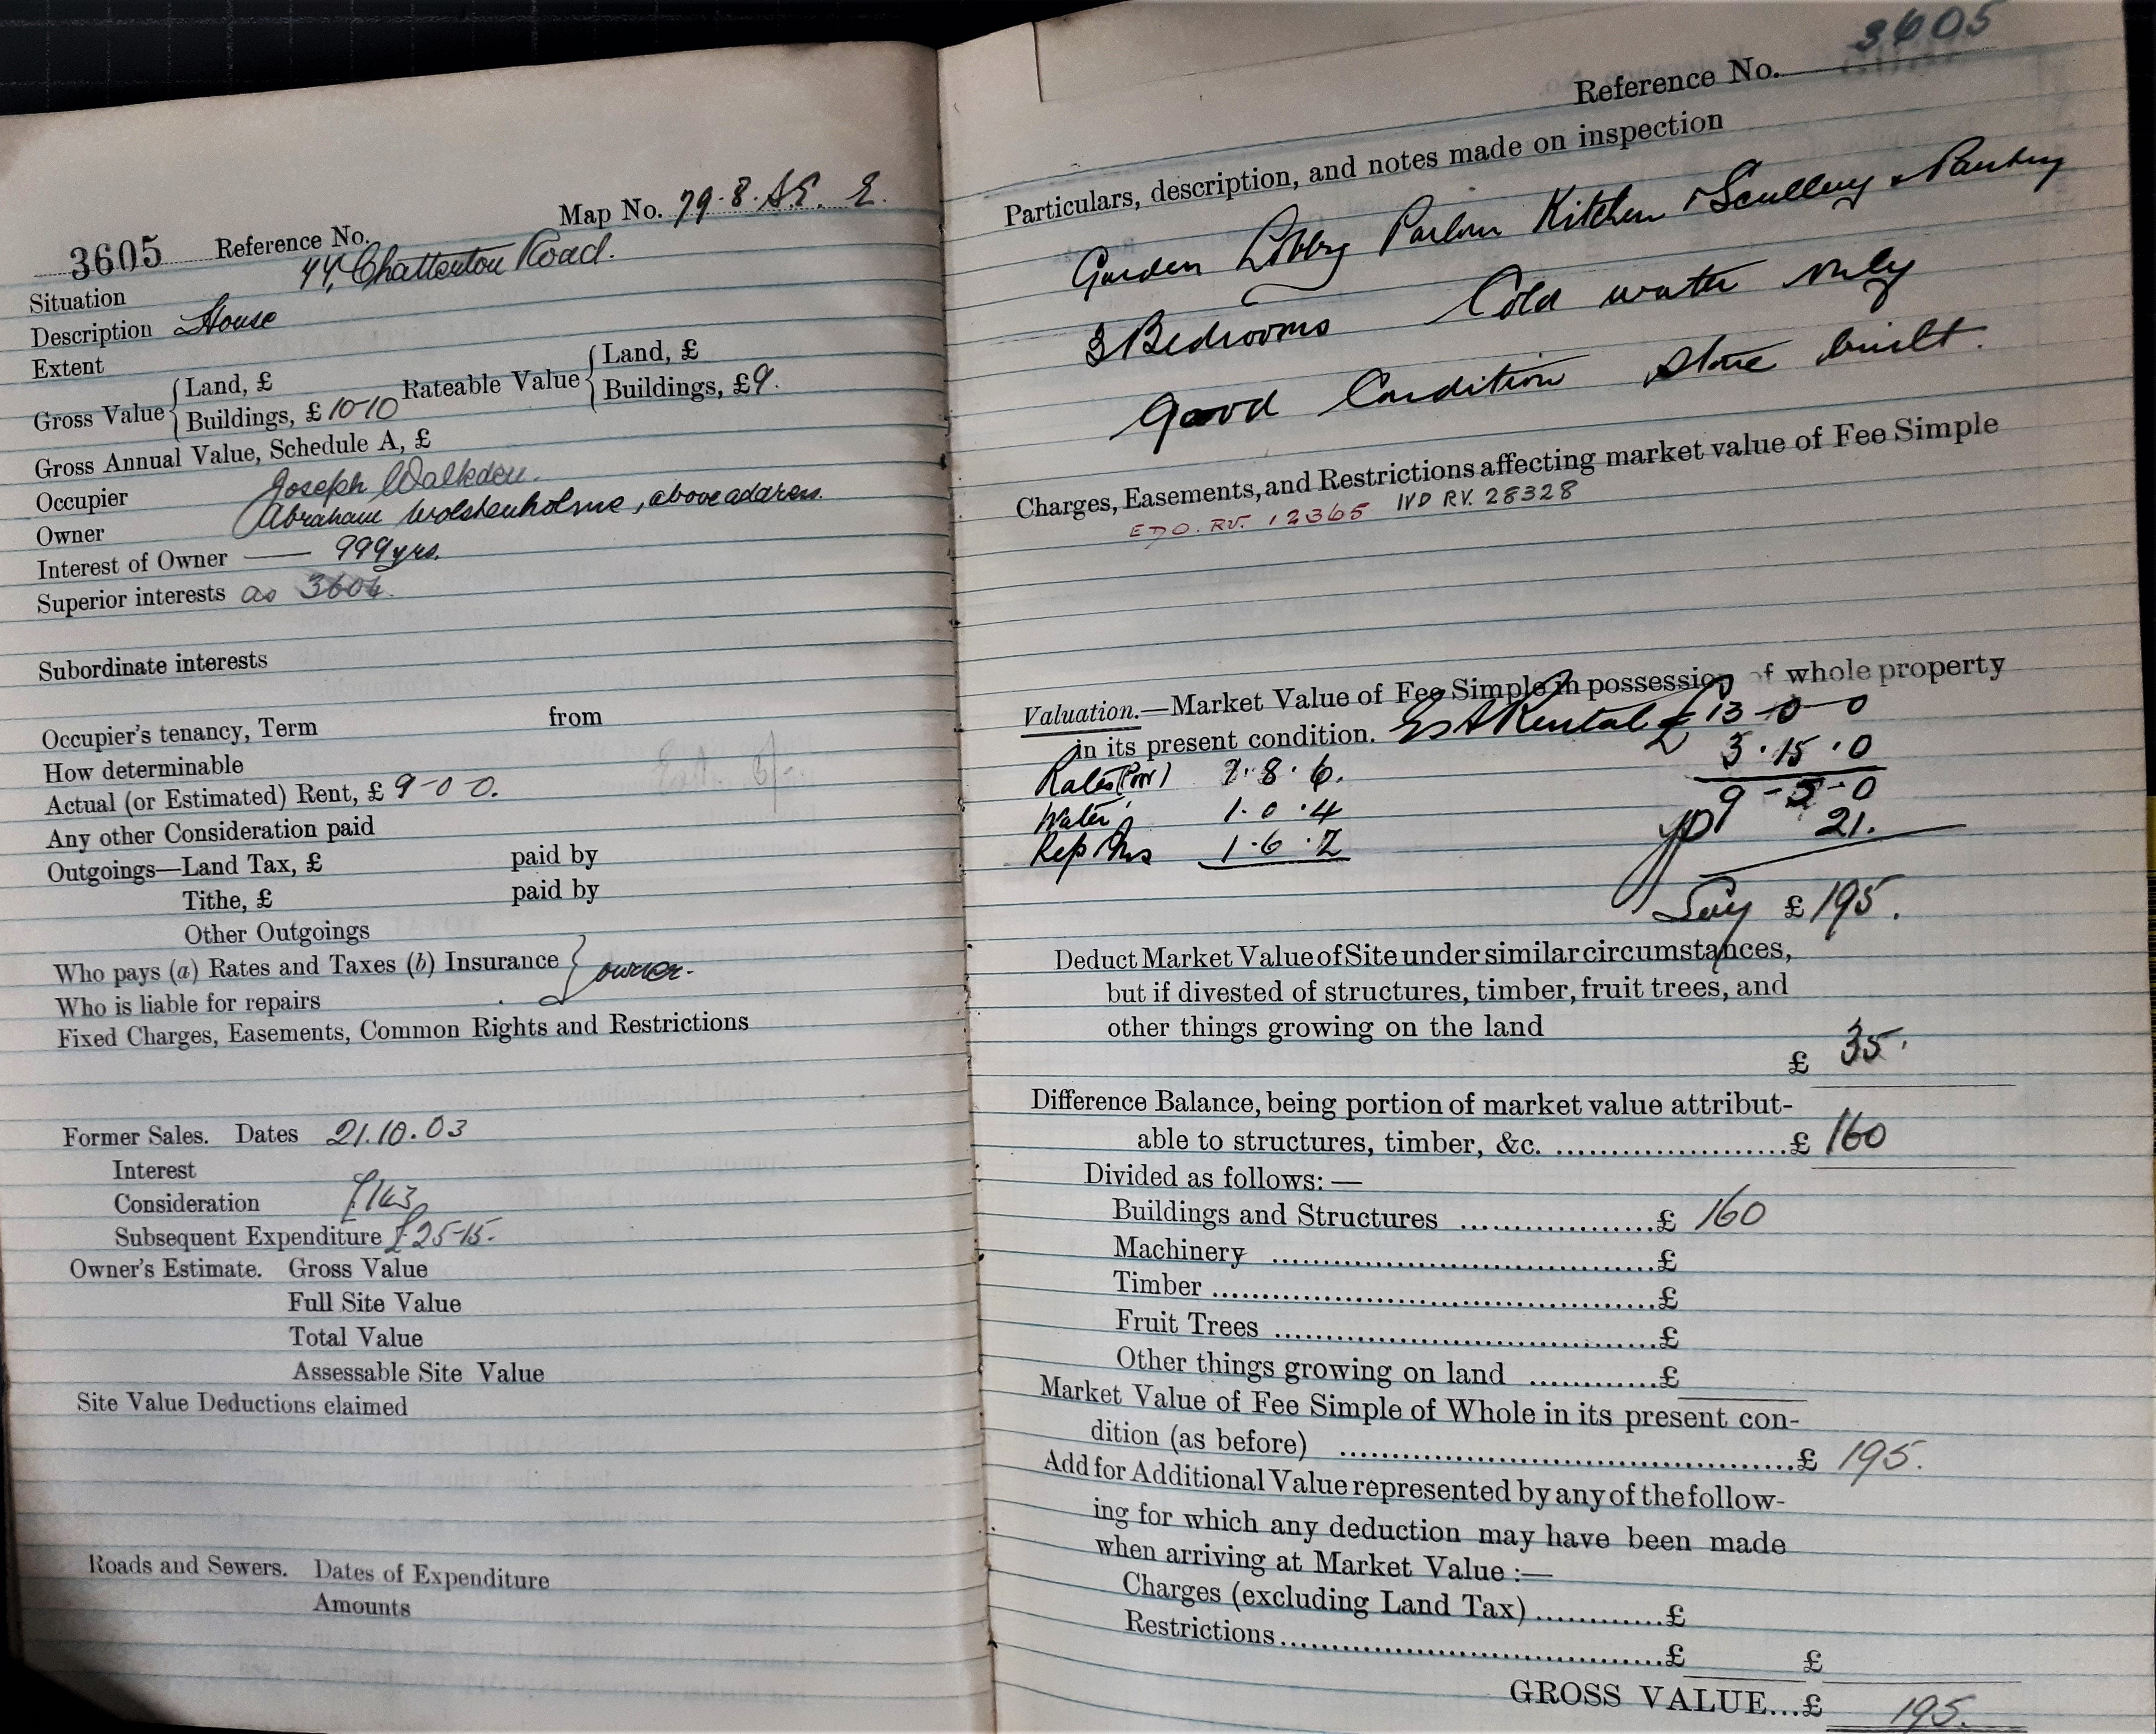 Map No. 79.8.S.E. E.
3605 Reference No.
Situation 44, Chatterton Road.
Description House
Extent
Gross Value { Land, £
Buildings, £ 10-10
Rateable Value { Land, £
Buildings, £ 9.
Gross Annual Value, Schedule A, £
Occupier Joseph Walkden.
Owner Abraham Wolstenholme, above address.
Interest of Owner —— 999 yrs.
Superior interests as 3604.
Subordinate interests
Occupier's tenancy, Term from
How determinable
Actual (or Estimated) Rent, £ 9-0-0.
Any other Consideration paid
Outgoings—Land Tax, £ paid by
Tithe, £ paid by
Other Outgoings
Who pays (a) Rates and Taxes (b) Insurance } owner.
Who is liable for repairs
Fixed Charges, Easements, Common Rights and Restrictions
Former Sales. Dates 21.10.03
Interest
Consideration £163
Subsequent Expenditure £25-15-
Owner's Estimate. Gross Value
Full Site Value
Total Value
Assessable Site Value
Site Value Deductions claimed
Roads and Sewers. Dates of Expenditure
Amounts
Reference No. 3605
Particulars, description, and notes made on inspection
Garden Lobby Parlour Kitchen & Scullery & Pantry
3 Bedrooms Cold water only
Good Condition stone built.
Charges, Easements, and Restrictions affecting market value of Fee Simple
RV. 12365 IVD RV. 28328
Valuation.—Market Value of Fee Simple in possession of whole property
in its present condition. Est Rental £ 13-0-0
3.15.0
Rates 8.6.
9-5-0
Water 1.0.4
YP 21.
Rep & Ins 1.6.2
Say £195.
Deduct Market Value of Site under similar circumstances,
but if divested of structures, timber, fruit trees, and
other things growing on the land
£ 35.
Difference Balance, being portion of market value attribut-
able to structures, timber, &c. ......................£ 160
Divided as follows:—
Buildings and Structures ..................£ 160
Machinery ......................................£
Timber ............................................£
Fruit Trees ......................................£
Other things growing on land ............£
Market Value of Fee Simple of Whole in its present con-
dition (as before) ..............................................£ 195.
Add for Additional Value represented by any of the follow-
ing for which any deduction may have been made
when arriving at Market Value :—
Charges (excluding Land Tax) ............£
Restrictions ......................................£ £
GROSS VALUE...£ 195.